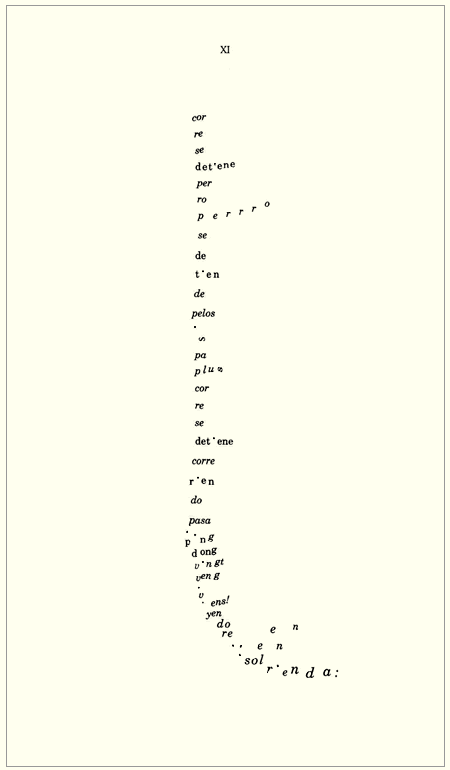 XI
cor
re
se
det·ene
per
ro
p e r r r o
se
de
t·en
de
pelos
·
s
pa
plus
cor
re
se
det·ene
corre
r·en
do
pasa
p·ng
dong
v·ngt
veng
v
·ens!
yen
do
re
e n
·· e n
·sol
r·enda: